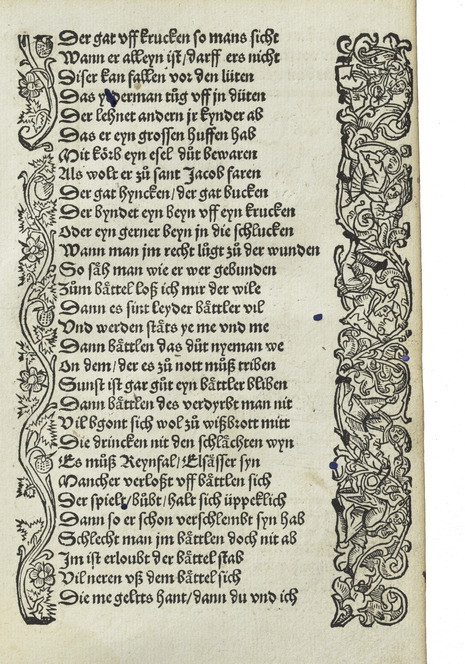 Der gat vff krucken so mans sicht
Wann er alleyn ist/darff ers nicht
Diser kan fallen vor den lüten
Das yderman tüg vff jn düten
Der lehnet andern jr kynder ab
Das er eyn grossen huffen hab
Mit körb eyn esel důt bewaren
Als wolt er zů sant Jacob faren
Der gat hyncken/der gat bucken
Der byndet eyn beyn vff eyn krucken
Oder eyn gerner beyn jn die schlucken
Wann man jm recht lůgt zů der wunden
So såh man wie er wer gebunden
Zům båttel loß ich mir der wile
Dann es sint leyder båttler vil
Vnd werden ståts ye me vnd me
Dann båttlen das důt nyeman we
On dem/der es zů nott můß triben
Sunst ist gar gůt eyn båttler bliben
Dann båttlen des verdyrbt man nit
Vil bgont sich wol zů wißbrott mitt
Die drincken nit den schlåchten wyn
Es můß Reynfal/Elsåsser syn
Mancher verloßt vff båttlen sich
Der spielt/bůbt/halt sich üppeklich
Dann so er schon verschlembt syn hab
Schlecht man jm båttlen doch nit ab
Im ist erloubt der båttel stab
Vil neren vß dem båttel sich
Die me geltts hant/dann du vnd ich